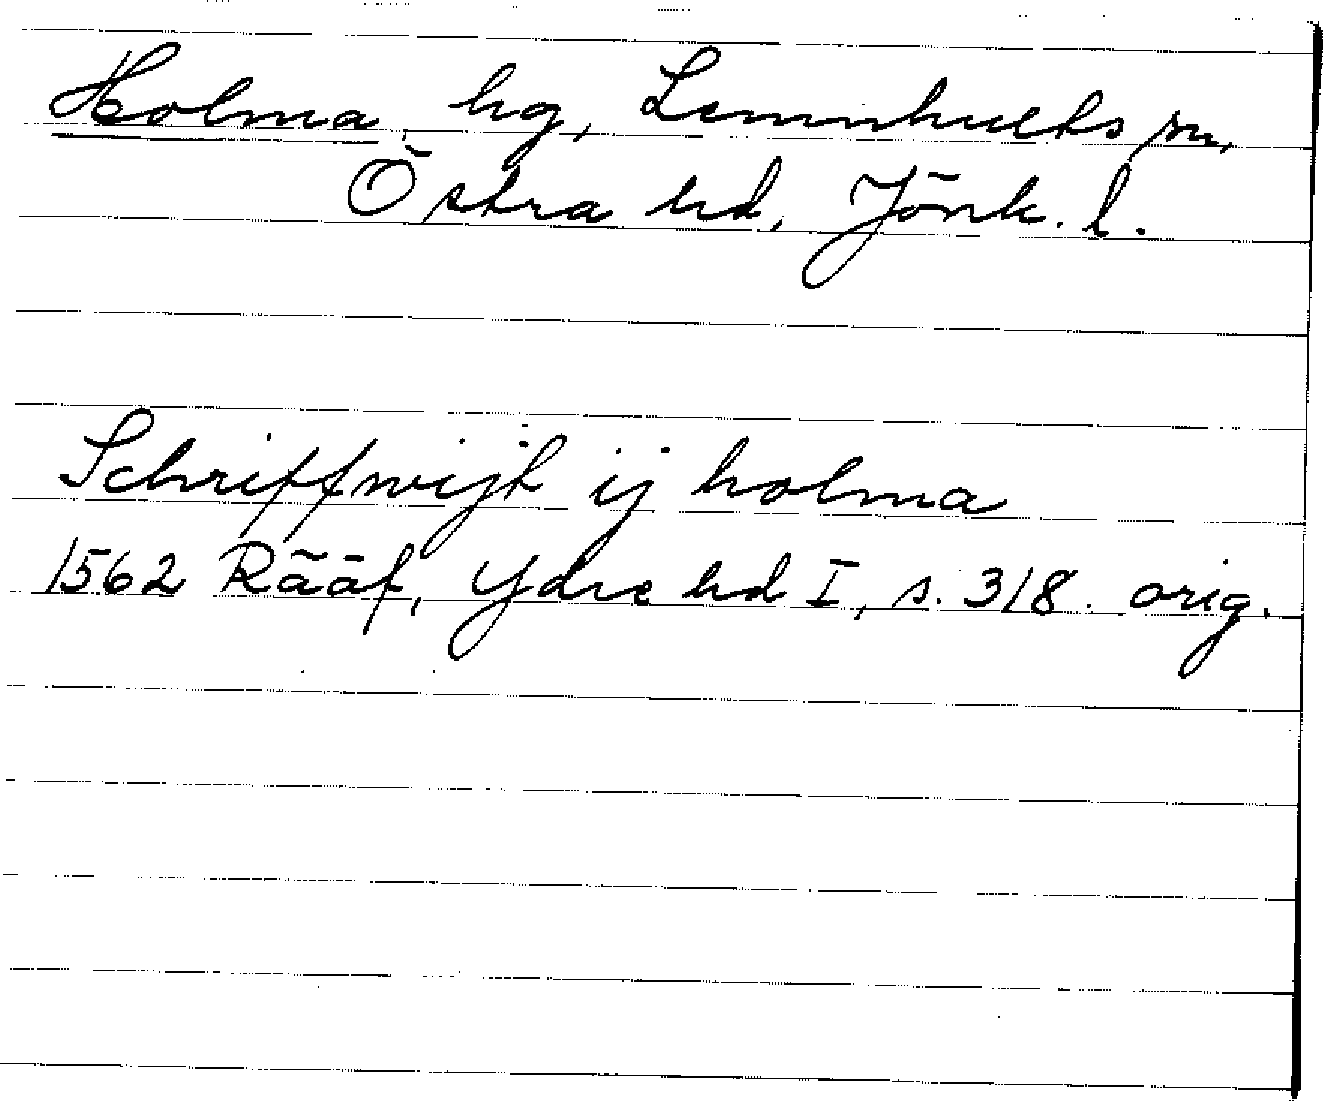 Holma, hg, Lemnhults sn,
Östra hd, Jönk. l.
Schriffwijt ij holma
1562 Rääf, Ydre hd I, s. 318. orig.